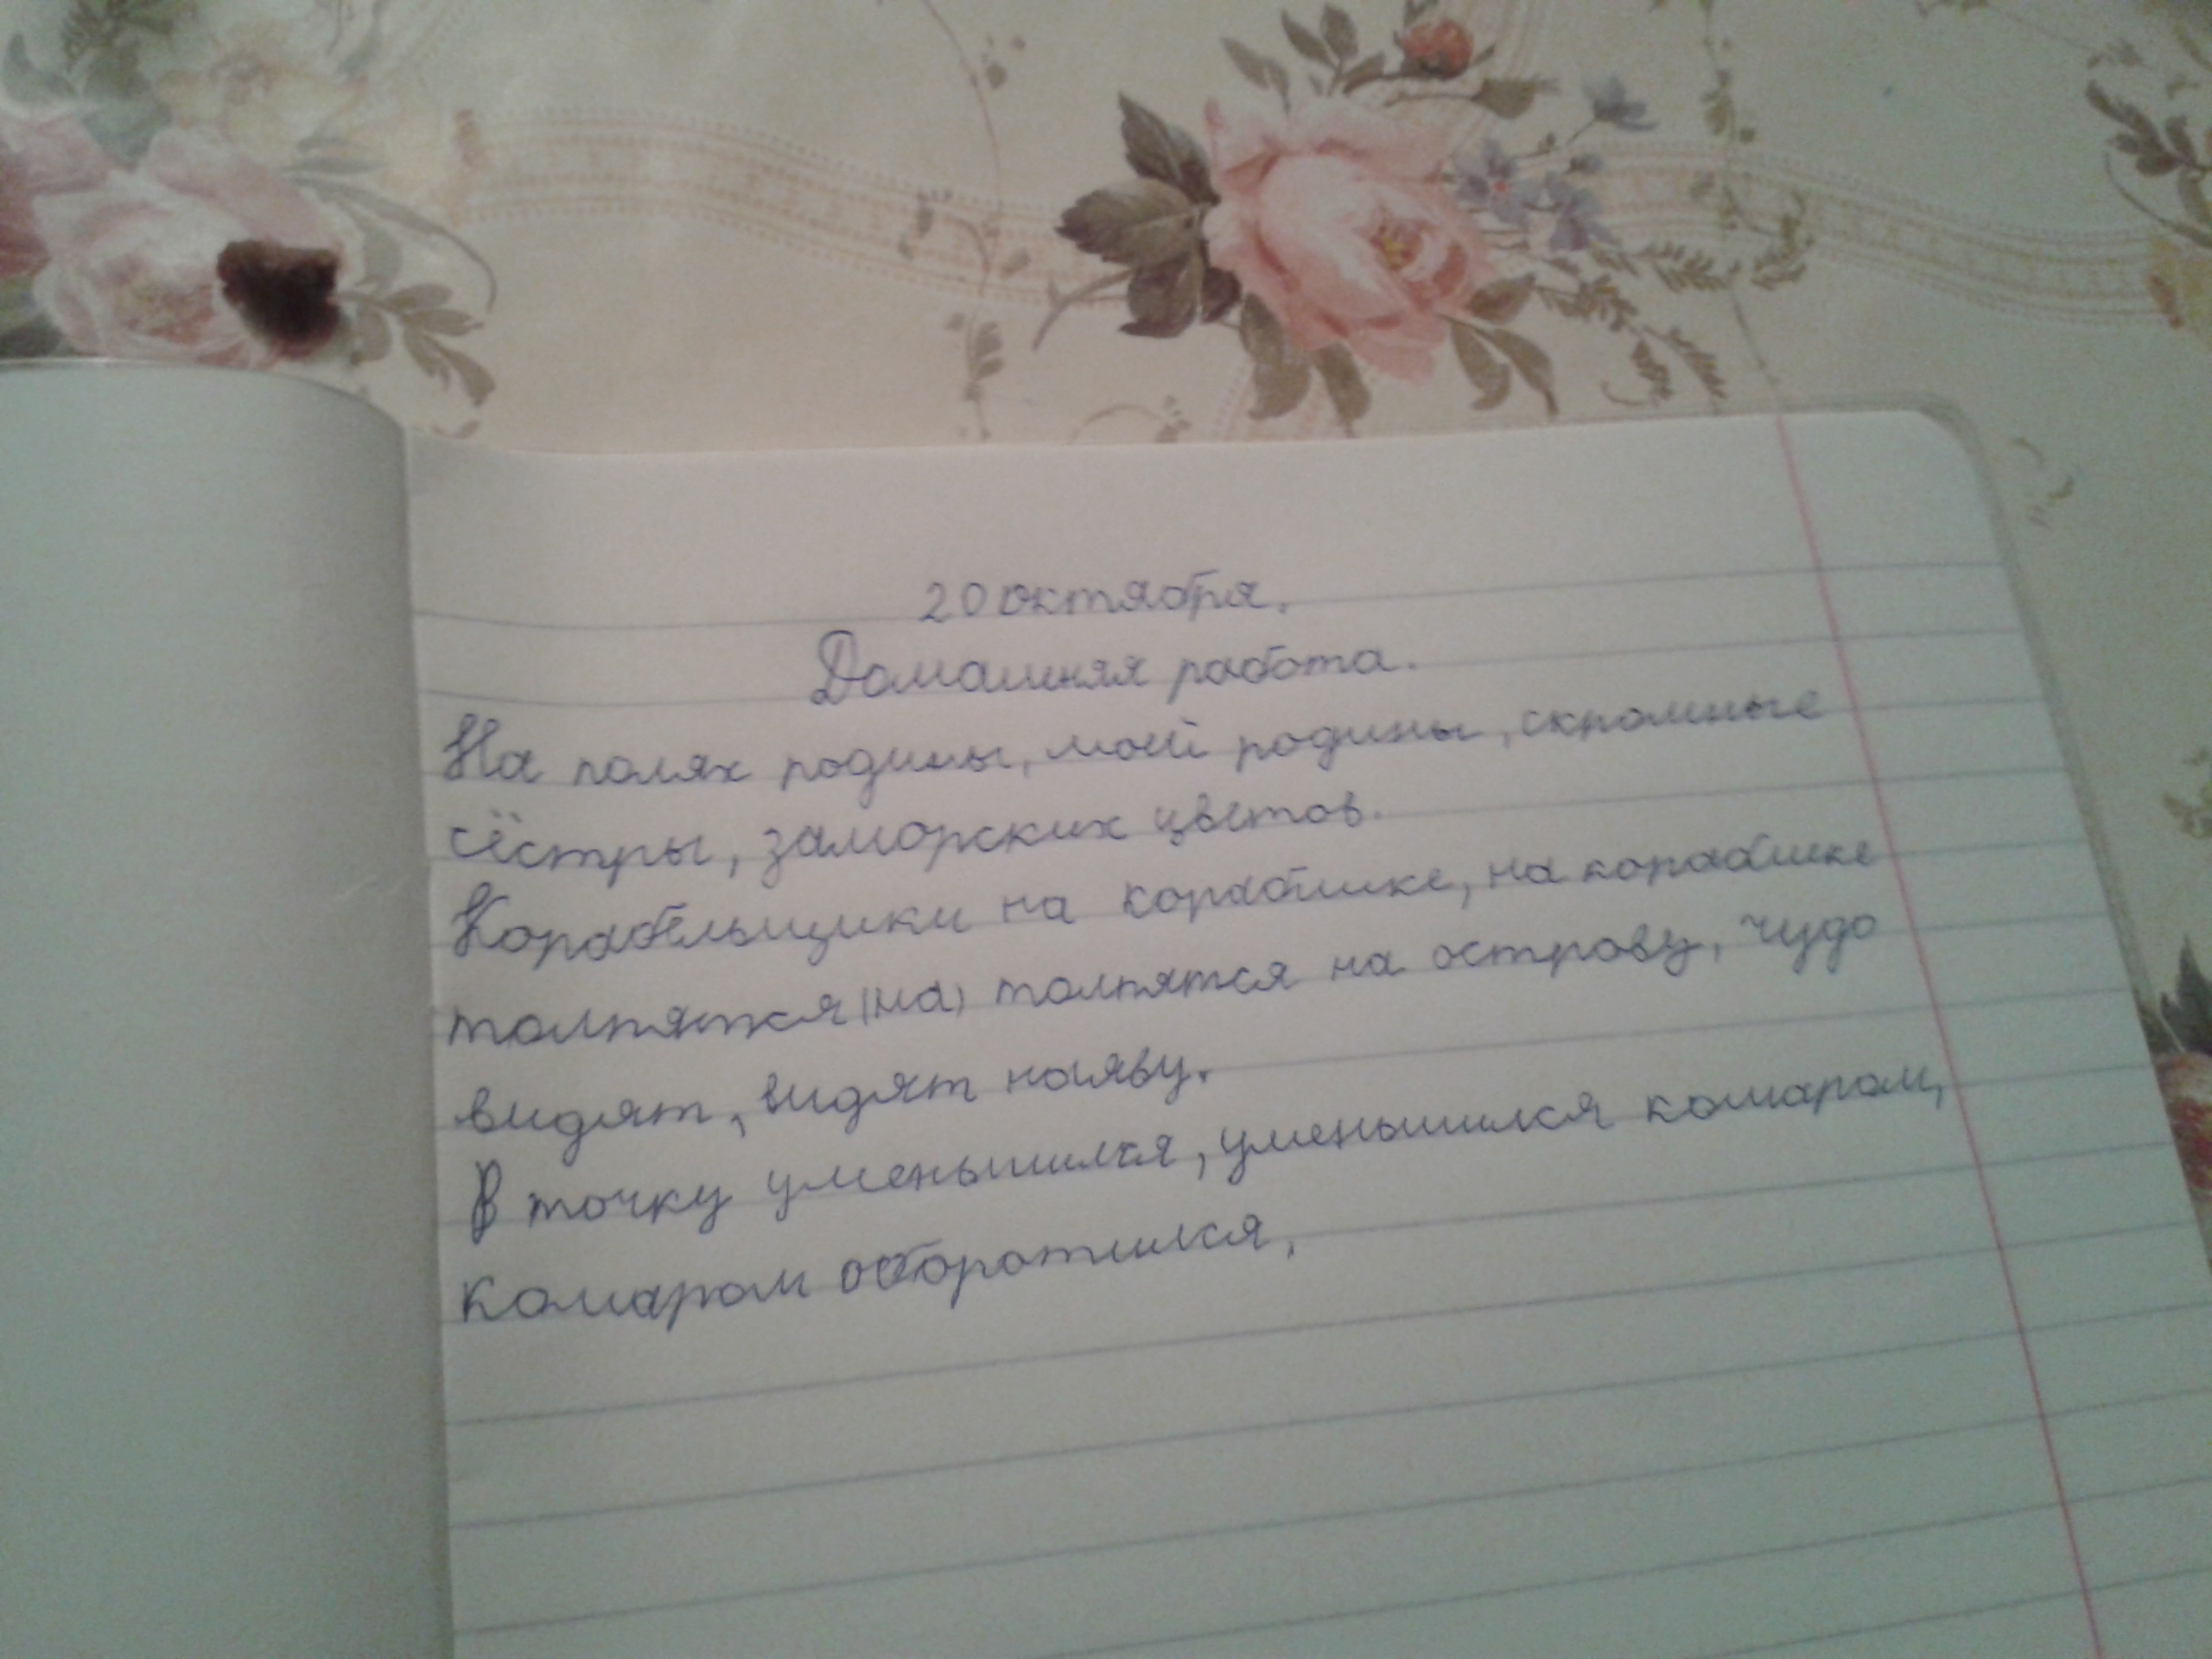 20 октября.
Домашняя работа.
На полях родины, моей родины, скромные
сёстры, заморских цветов.
Корабельщики на кораблике, на кораблике
толпятся (на) толпятся на острову, чудо
видят, видят наяву.
В точку уменьшился, уменьшился комаром,
комаром оборотился,